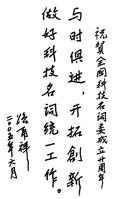 祝贺全国科技名词委成立廿周年
与时俱进，开拓创新
做好科技名词统一工作。
路甬祥
二〇〇五年六月